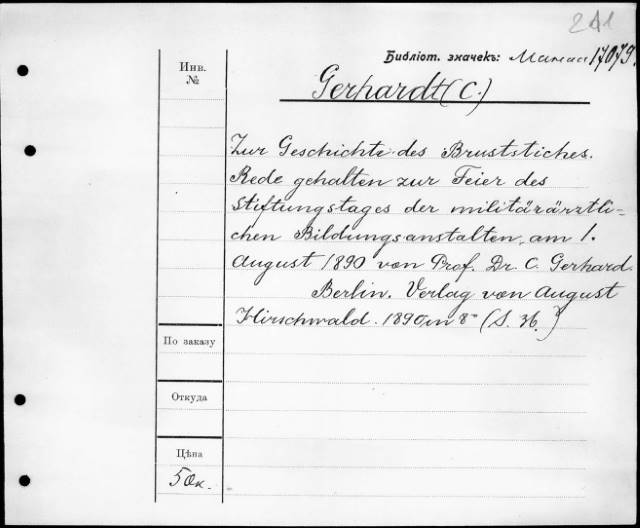 241
Библіот. значекъ: 17079.
Инв.
№
Gerhardt (C.)
Zur Geschichte des Bruststiches.
Rede gehalten zur Feier des
Stiftungstages der militärärztli=
chen Bildungsanstalten, am 1.
August 1890 von Prof. Dr. C. Gerhard.
Berlin. Verlag von August
Hirschwald. 1890 in 8° (S. 36.)
По заказу
Откуда
Цѣна
50к.